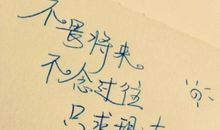 不畏将来
不念过往
只求现